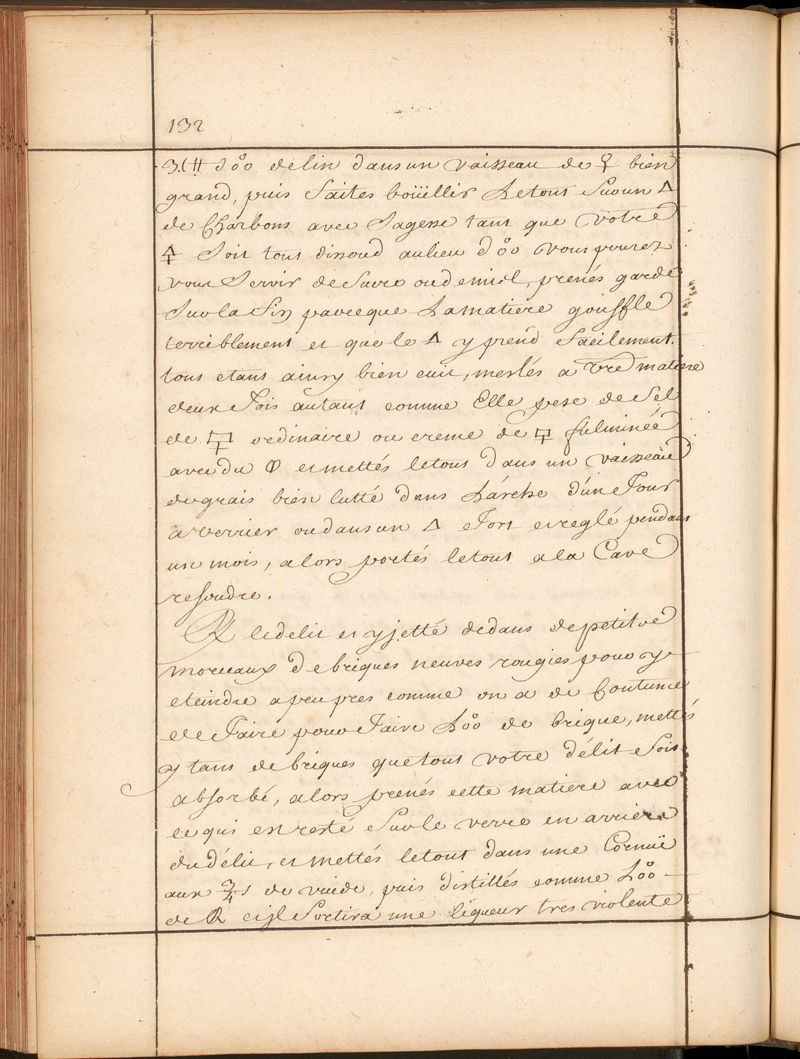 132
3. (!! d'o°o de lin dans un vaisseau de ♀ bien
grand, puis faites boüillir Le tout Sur un △
de Charbons avec Sagesse tant que votre
🜍 Soit tout dissoud au lieu d'o°o vous pourez
vous Servir de Sucre ou de miel, prenés garde
Sur la fin parce que La matiere gonffle
terriblement et que le △ y prend facilement.
tout etant ainsy bien cuit, meslés a vre matiere
deux fois autant comme Elle pese de Sel
de 🜿 ordinaire ou creme de 🜿 fulminée
avec du 🜕 et mettés le tout dans un vaisseau
de grais bien lutté dans L'arche d'un Four
a verrier ou dans un △ Fort et reglé pendant
un mois, alors portés le tout a la Cave
resoudre.
℞ le delit et y jetté dedans de petits
morceaux de briques neuves rougies pour y
eteindre a peu pres comme on a de Coutume
de Faire pour Faire L'o°o de brique, mettés
y tant de briques que tout votre délit Soit
absorbé, alors prenés cette matiere avec
ce qui en resté Sur le verre en arriere
du délit, et mettés le tout dans une Cornüe
aux 3/4 de vuide, puis distillés comme L'o°o
de et il Sortira une liqueur tres violente